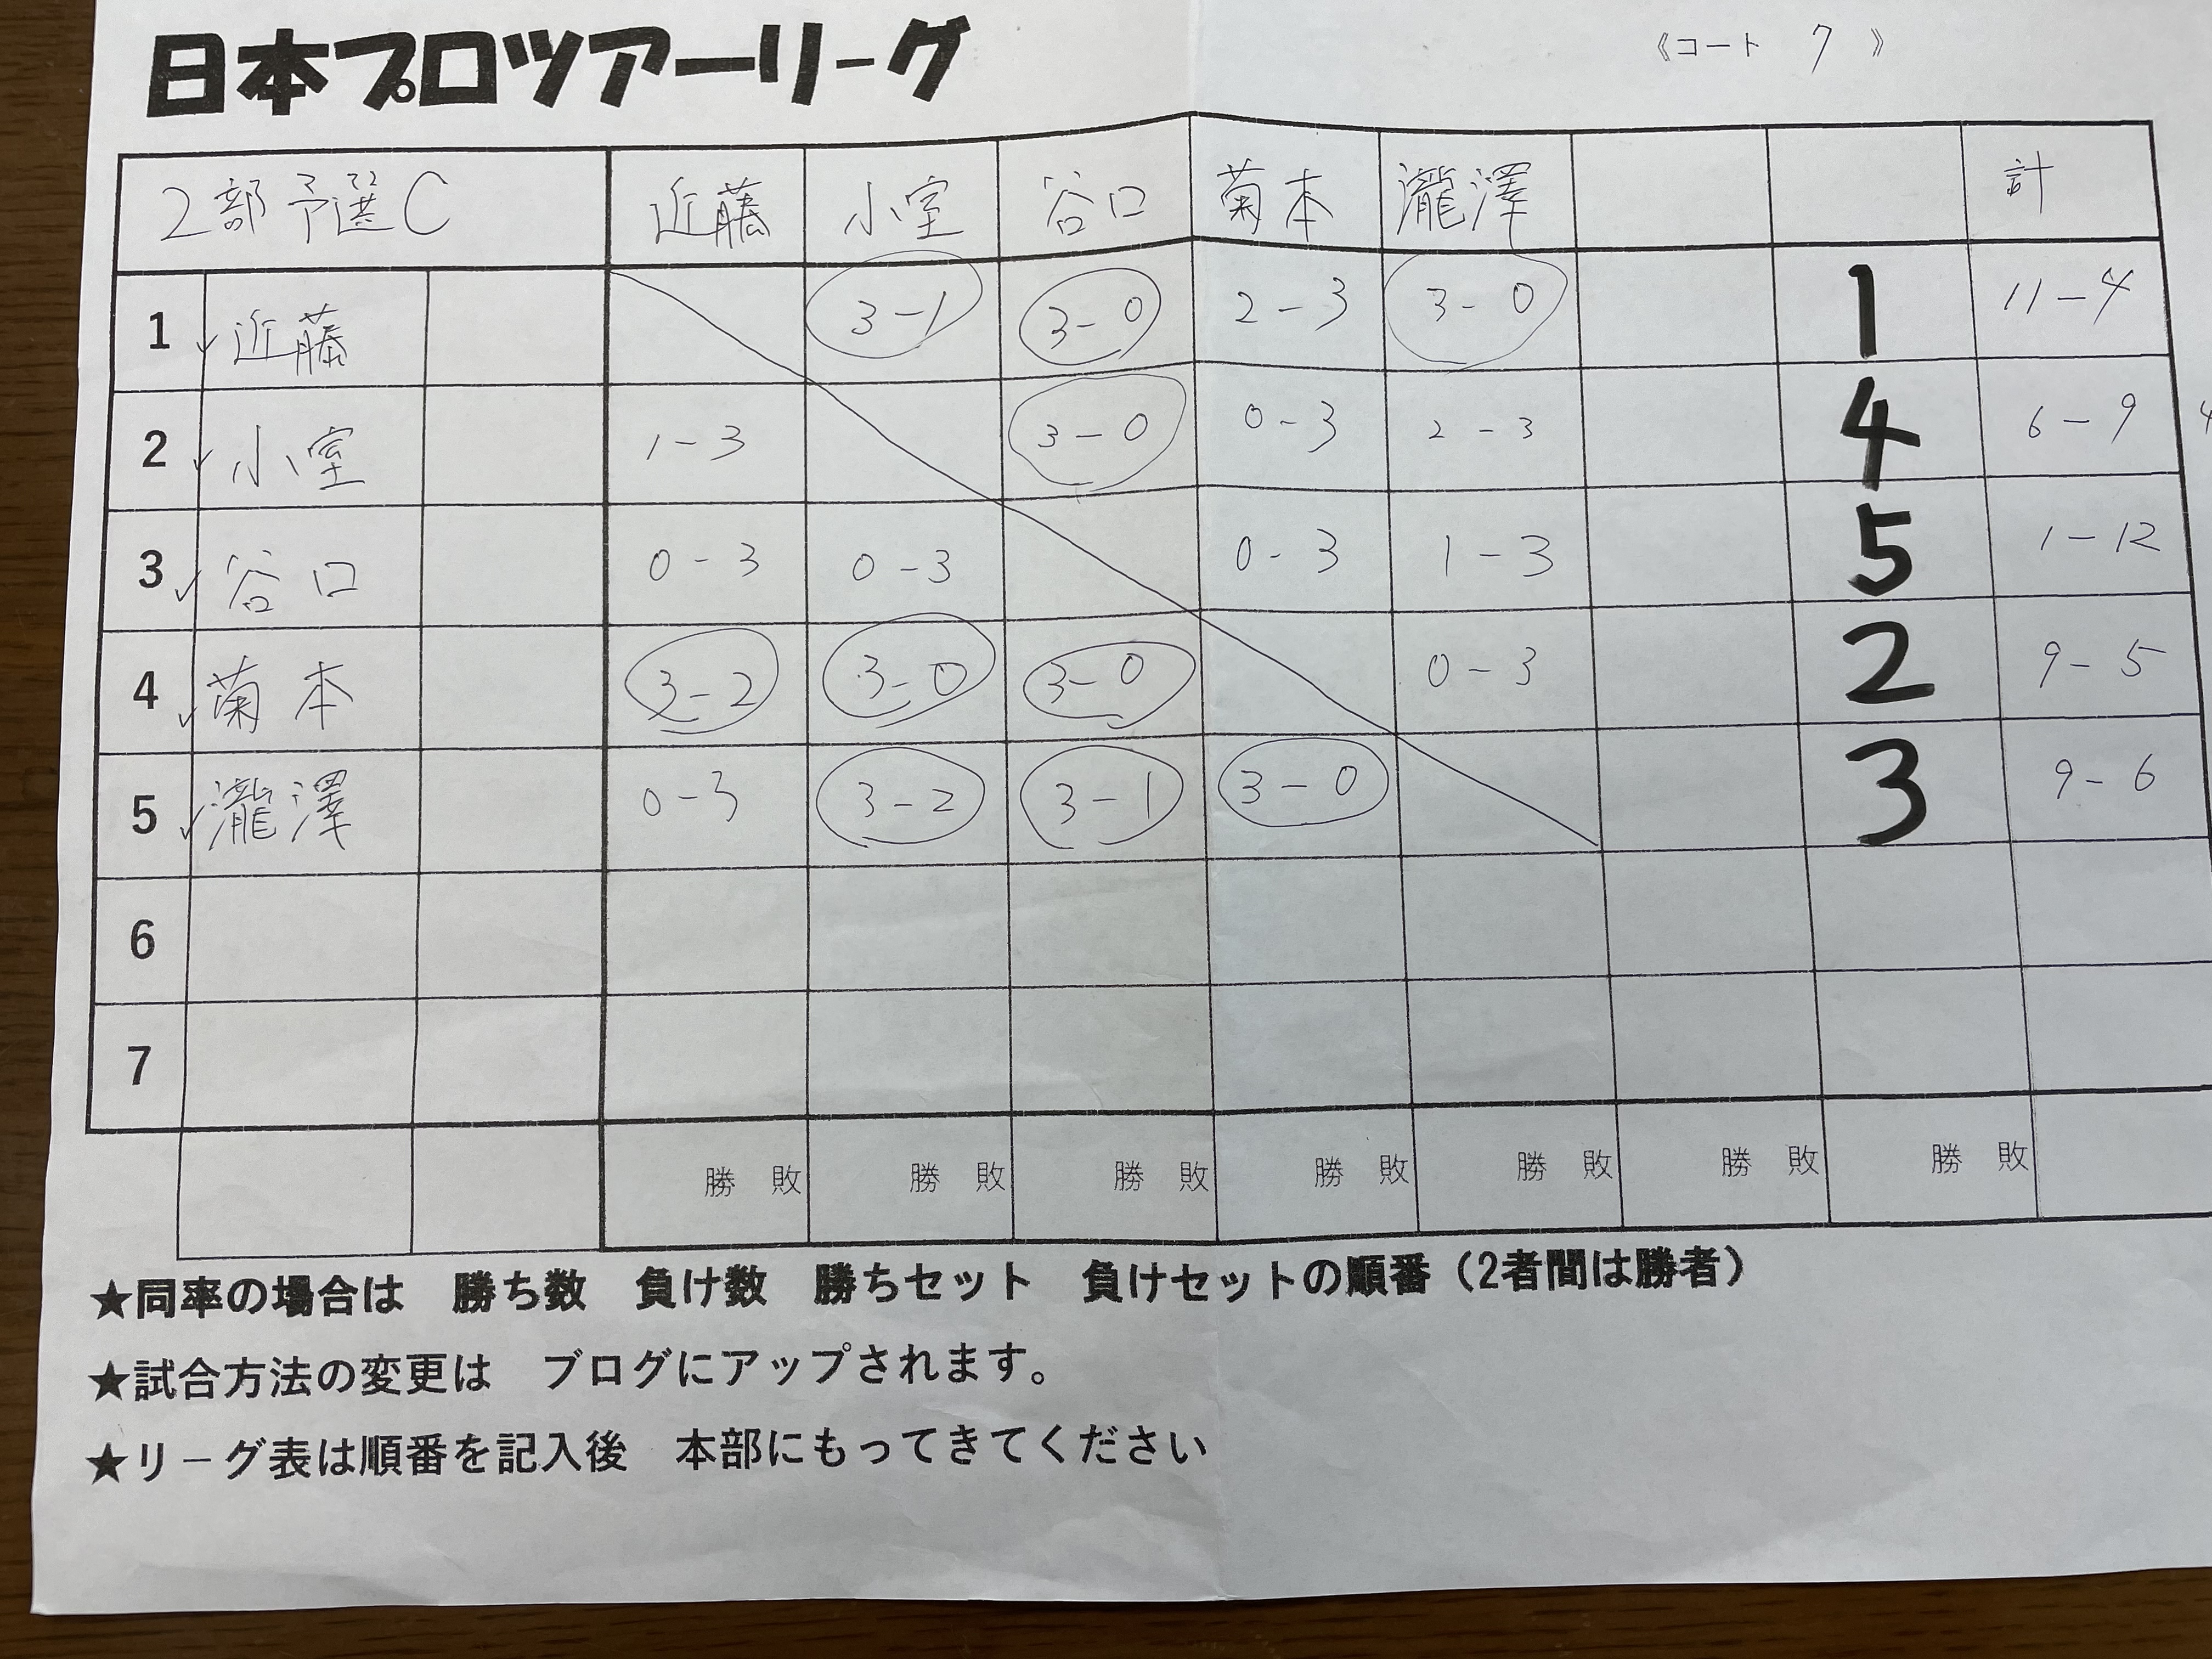 日本プロツアーリーグ
《コート 7 》
2部予選C 近藤 小室 谷口 菊本 瀧澤 計
1 近藤 3-1 3-0 2-3 3-0 1 11-4
2 小室 1-3 3-0 0-3 2-3 4 6-9
3 谷口 0-3 0-3 0-3 1-3 5 1-12
4 菊本 3-2 3-0 3-0 0-3 2 9-5
5 瀧澤 0-3 3-2 3-1 3-0 3 9-6
6
7
勝 敗 勝 敗 勝 敗 勝 敗 勝 敗 勝 敗 勝 敗
★同率の場合は 勝ち数 負け数 勝ちセット 負けセットの順番(2者間は勝者)
★試合方法の変更は ブログにアップされます。
★リーグ表は順番を記入後 本部にもってきてください